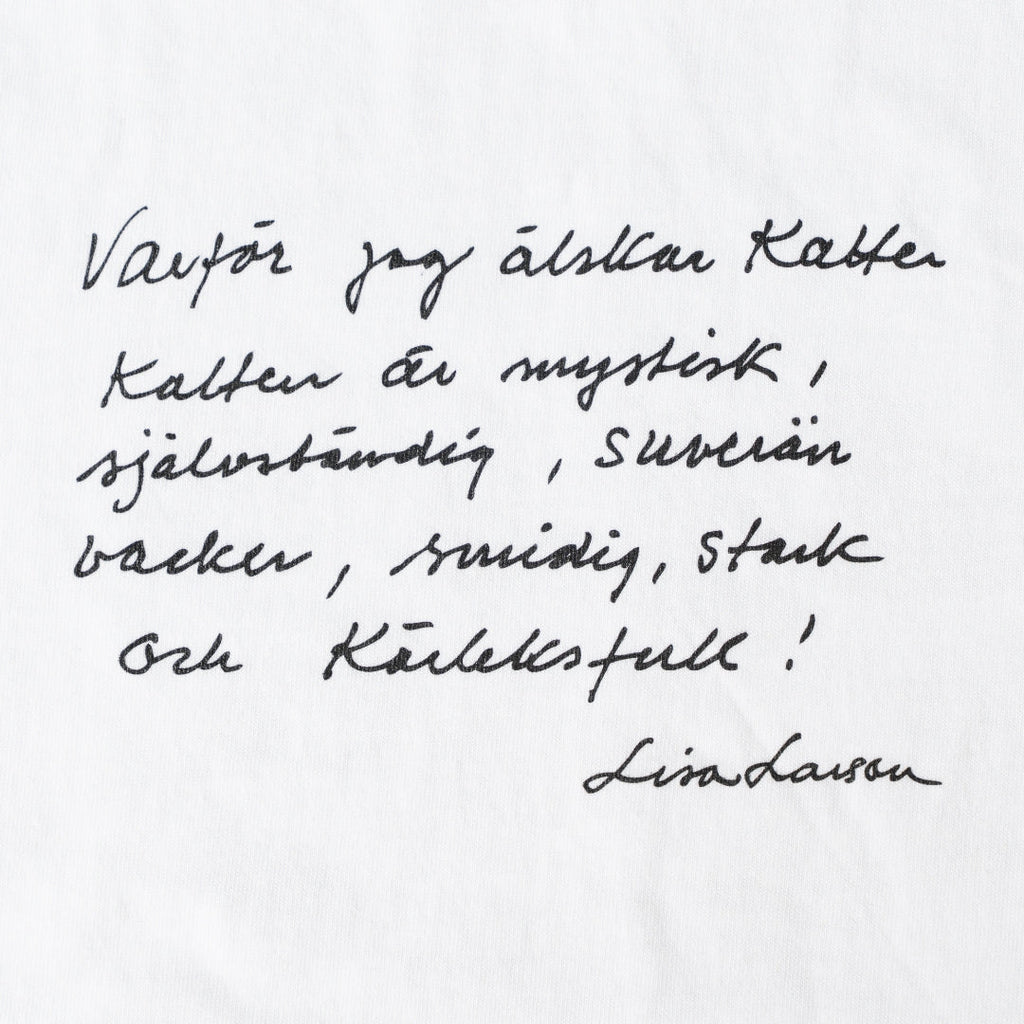 Varför jag älskar Katten
Katten är mystisk,
självständig, suverän
vacker, smidig, stark
och Kärleksfull!
Lisa Larson